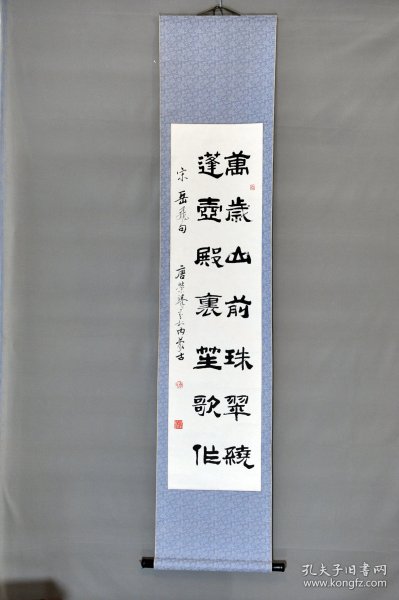 萬歲山前珠翠繞
蓬壺殿裏笙歌作
宋 岳飛句
唐 內蒙古
孔夫子旧书网
www.kongfz.com